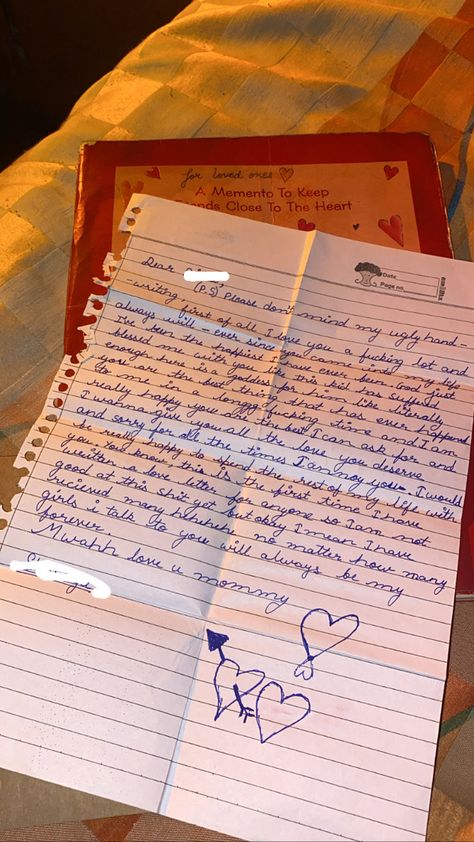 for loved ones
A Memento To Keep
Friends Close To The Heart
Date
Page no.
Dear
(P.S) Please don't mind my ugly hand-
-writing first of all I love you a fucking lot and
always will - ever since you came into my life
I've been the happiest I have ever been God just
blessed me with you like this kid has suffered
enough here is a goddess for him like literally
you are the best thing that has ever happened
to me in a longgg fucking time and I am
really happy you are the best I can ask for and
I wanna give you all the love you deserve
and sorry for all the times I annoy you. I would
be really happy to spend the rest of my life with
you. You know this is the first time I have
written a love letter for anyone so I am not
good at this shit yet but okay I mean I have
recieved many hehehehe no matter how many
girls i talk to you will always be my
forever
Mwahh love u mommy